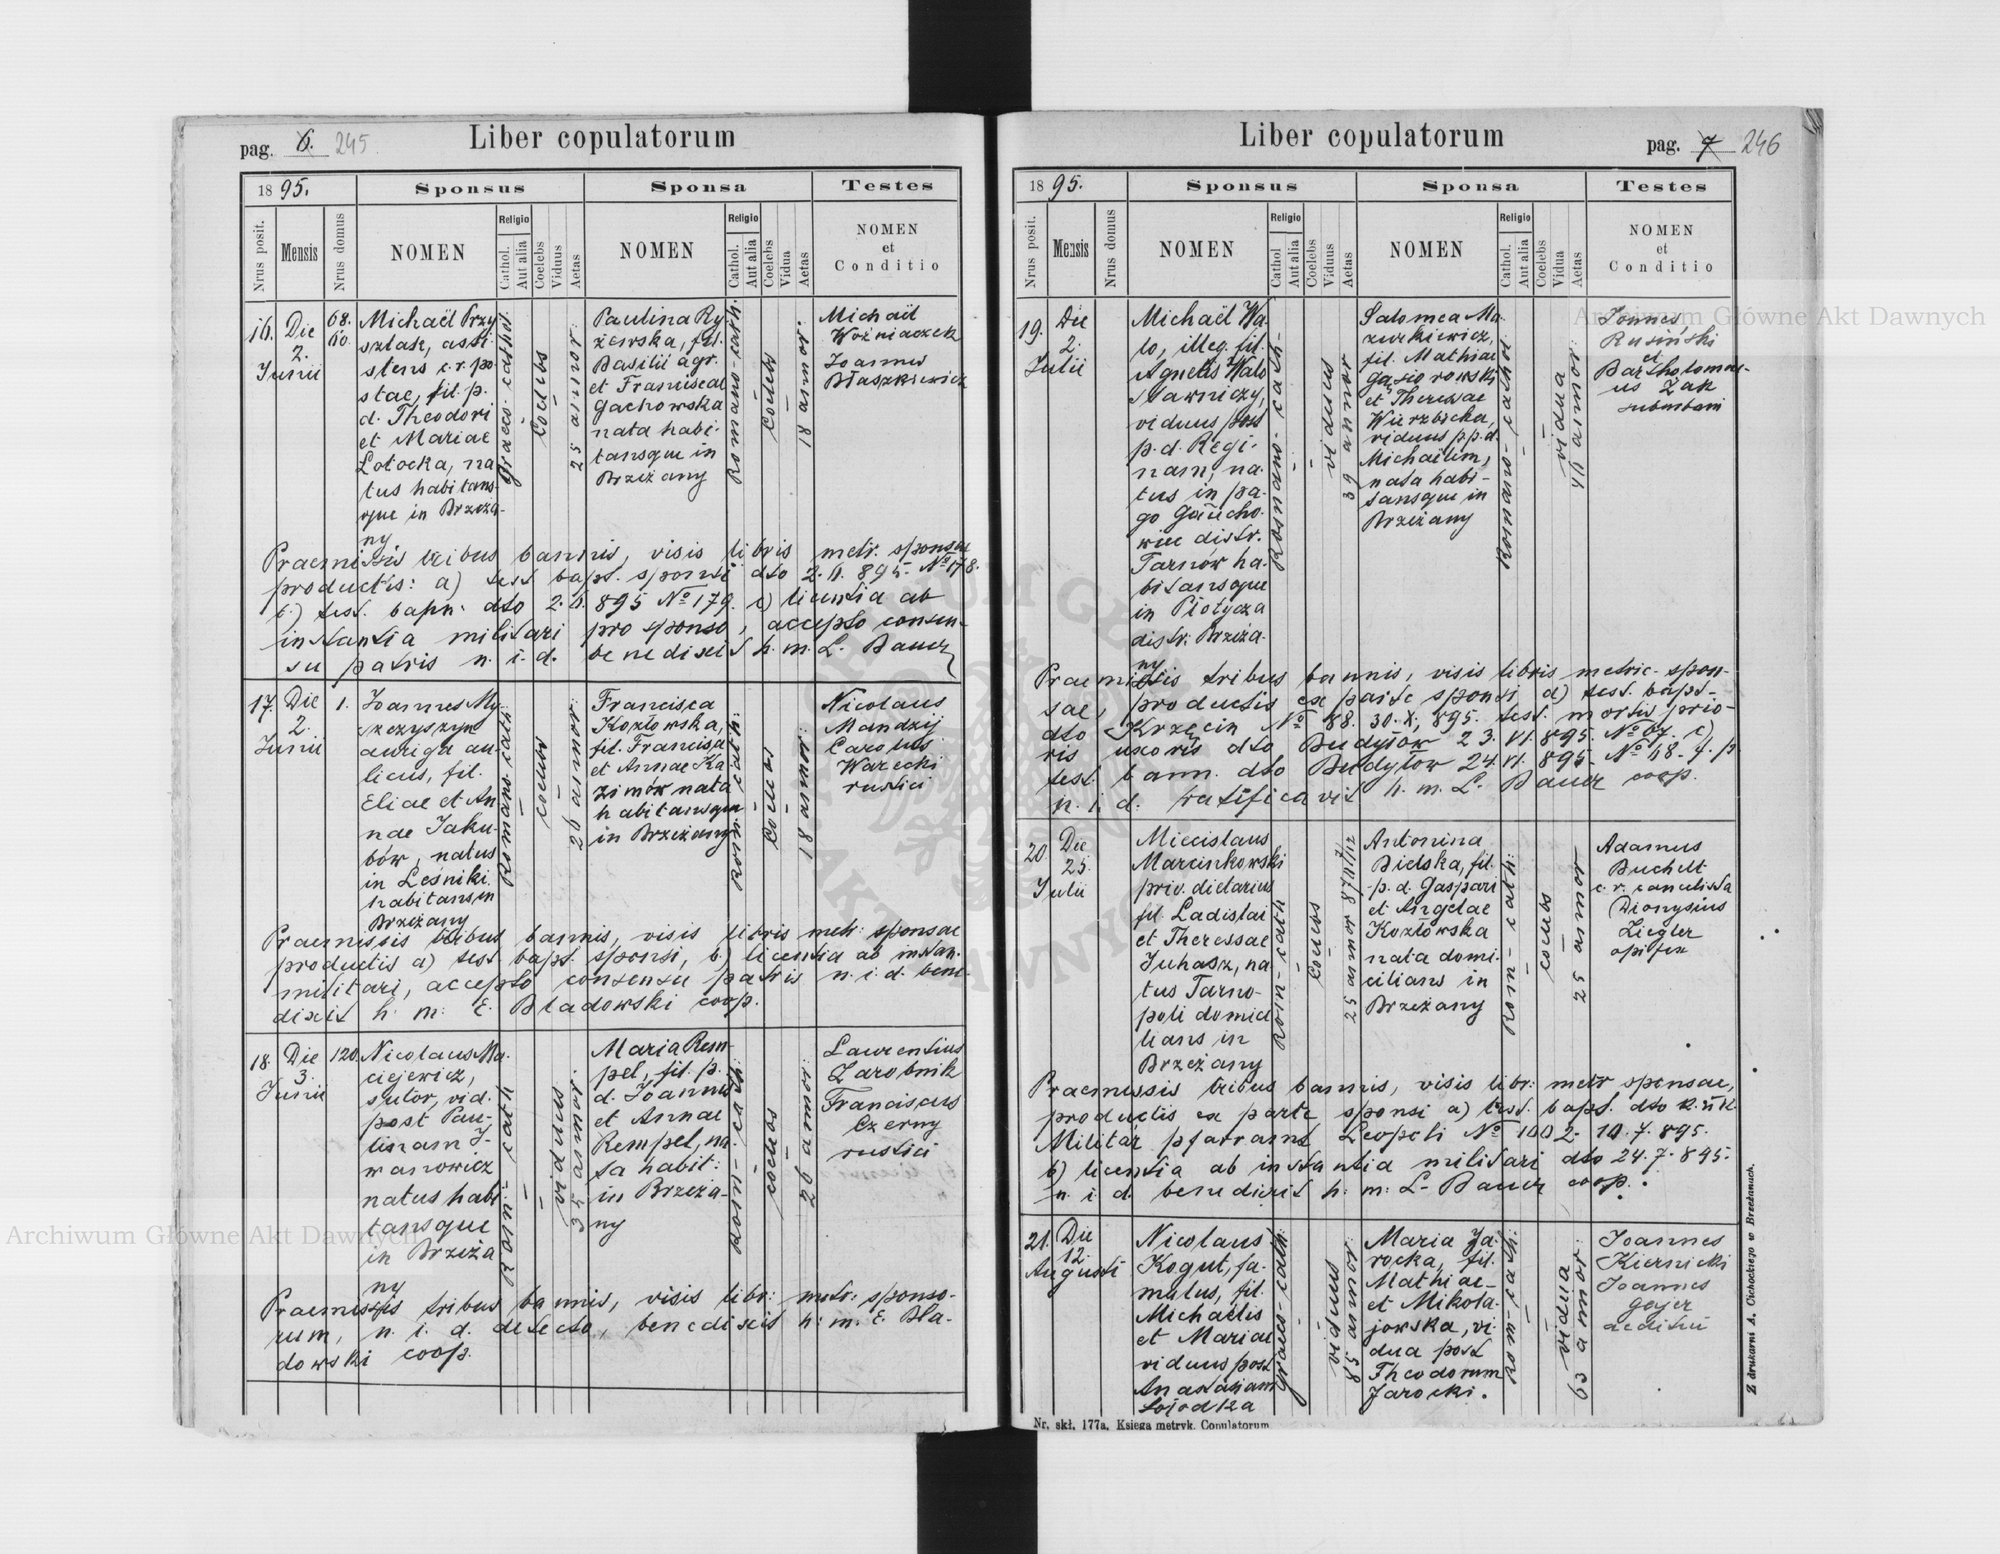 pag. 6. 245
Liber copulatorum
18 95.
Sponsus
Sponsa
Testes
Nrus posit.
Mensis
Nrus domus
NOMEN
Religio
Cathol.
Aut alia
Coelebs
Viduus
Aetas
NOMEN
Religio
Cathol.
Aut alia
Coelebs
Vidua
Aetas
NOMEN
et
Conditio
16.
Die
2.
Junii
68.
60.
Michaël Przy
sztak, assi
stens c. r. po
stae, fil. p.
d. Theodori
et Mariae
Łotocka, na
tus habitans-
que in Brzeża-
ny.
Graeco-cathol.
Coelebs
25 annor.
Paulina Ry
żewska, fil.
Basilii agr.
et Franciscae
Gachowska
nata habi-
tansque in
Brzeżany
Romano-cath.
Coelebs
18 annor.
Michaël
Woźniaczek
Joannes
Błaszkiewicz
Praemissis tribus bannis, visis libris metr. sponsae
productis: a) test. bapt. sponsi dto 2. 6. 895. No 178.
b) test. bann. dto 2. 6. 895 No 179. c) licentia ab
instantia militari pro sponso, accepto consen-
su patris n. i. d. benedixit h. m. L. Bauer
17.
Die
2.
Junii
1.
Joannes My
szczyszyn
auriga au-
licus, fil.
Eliae et An
nae Jaku-
bów, natus
in Leśniki
habitans in
Brzeżany
Romano-cath.
Coelebs
26 annor.
Francisca
Kozłowska,
fil. Francisci
et Annae Ka
zimów nata
habitansque
in Brzeżany
Rom.-cath.
Coelebs
18 annor.
Nicolaus
Mandzij
Carolus
Warecki
rustici
Praemissis tribus bannis, visis libris metr. sponsae
productis a) test. bapt. sponsi, b) licentia ab instan.
militari, accepto consensu patris n. i. d. bene-
dixit h. m. E. Bladowski coop.
18.
Die
3.
Junii
120
Nicolaus Ma-
ciejewicz,
sutor, vid.
post Pau-
linam J-
wanowicz
natus habi
tansque
in Brzeża
ny
Rom.-cath
viduus
35 annor.
Maria Rem-
pel, fil. p.
d. Joannis
et Annae
Rempel, na-
ta habit:
in Brzeża-
ny
Rom.-cath.
coelebs
26 annor.
Laurentius
Zarobnik
Franciscus
Czerny
rustici
Praemissis tribus bannis, visis libr: metr: sponso-
rum, n. i. d. detecto, benedixit h. m. E. Bla-
dowski coop.
Liber copulatorum
pag. 7 246
18 95.
Sponsus
Sponsa
Testes
Nrus posit.
Mensis
Nrus domus
NOMEN
Religio
Cathol
Aut alia
Coelebs
Viduus
Aetas
NOMEN
Religio
Cathol.
Aut alia
Coelebs
Vidua
Aetas
NOMEN
et
Conditio
19.
Die
2.
Julii
Michaël Wa-
lo, illeg. fil.
Agnetis Walo
viduus post
p. d. Regi-
nam, na-
tus in pa-
go
wiec distr.
Tarnów ha-
bitansque
in Płotycza
distr. Brzeża-
ny
Romano-cath-
viduus
39 annor
Salomea Ma-
zurkiewicz,
fil. Mathiae
Gąsiorowski
et Theresiae
Wierzbicka,
vidua p. p. d.
Michaëlem,
nata habi-
tansque in
Brzeżany
Romano-cathol.
vidua
40 annor.
Joannes
Rusiński
et
Bartholomae-
us Żak
Praemissis tribus bannis, visis libris metric. spon-
sae, productis ex parte sponsi a) test. bapt.
dto Krzęcin No 88. 30. X. 895. test. mortis prio-
ris uxoris dto Budyłów 23. VI. 895. No 67. c)
test. bann. dto Budyłów 24. VI. 895. No 68.
n. i. d. ratificavit h. m. L. Bauer coop.
20.
Die
25.
Julii
Miecislaus
Marcinkowski
priv. dietarius
fil. Ladislai
et Theressae
Juhasz, na-
tus Tarno-
poli domici
lians in
Brzeżany
Rom-cath
Coelebs
25 annor
Antonina
Bielska, fil.
p. d. Gaspari
et Angelae
Kozłowska
nata domi-
cilians in
Brzeżany
Rom-cath:
coelebs
25 annor
Adamus
Buchelt
c. r. cancelista
Dionysius
Ziegler
opifex
Praemissis tribus bannis, visis libr: metr sponsae,
productis ex parte sponsi a) test. bapt. dto
Militär pfarramt Leopoli No 1002. 10. 7. 895.
b) licentia ab instantia militari dto 24. 7. 895.
n. i. d. benedixit h: m: L. Bauer coop.
21.
Die
12.
Augusti
Nicolaus
Kogut, fa-
mulus, fil.
Michaelis
et Mariae
viduus post
Anastasiam
Graeco-cath.
viduus
85 annor.
Maria Ja-
rocka, fil.
Mathiae
et Mikoła-
jowska, vi-
dua post
Theodorum
Jarocki.
Rom-cath.
vidua
63 annor.
Joannes
Kiernicki
Joannes
Gajer
aeditui
Nr. skł. 177a. Księga metryk. Copulatorum
Z drukarni A. Cichockiego w Brzeżanach.
Archiwum Główne Akt Dawnych
Archiwum Główne Akt Dawnych
ARCHIWUM GŁÓWNE AKT DAWNYCH